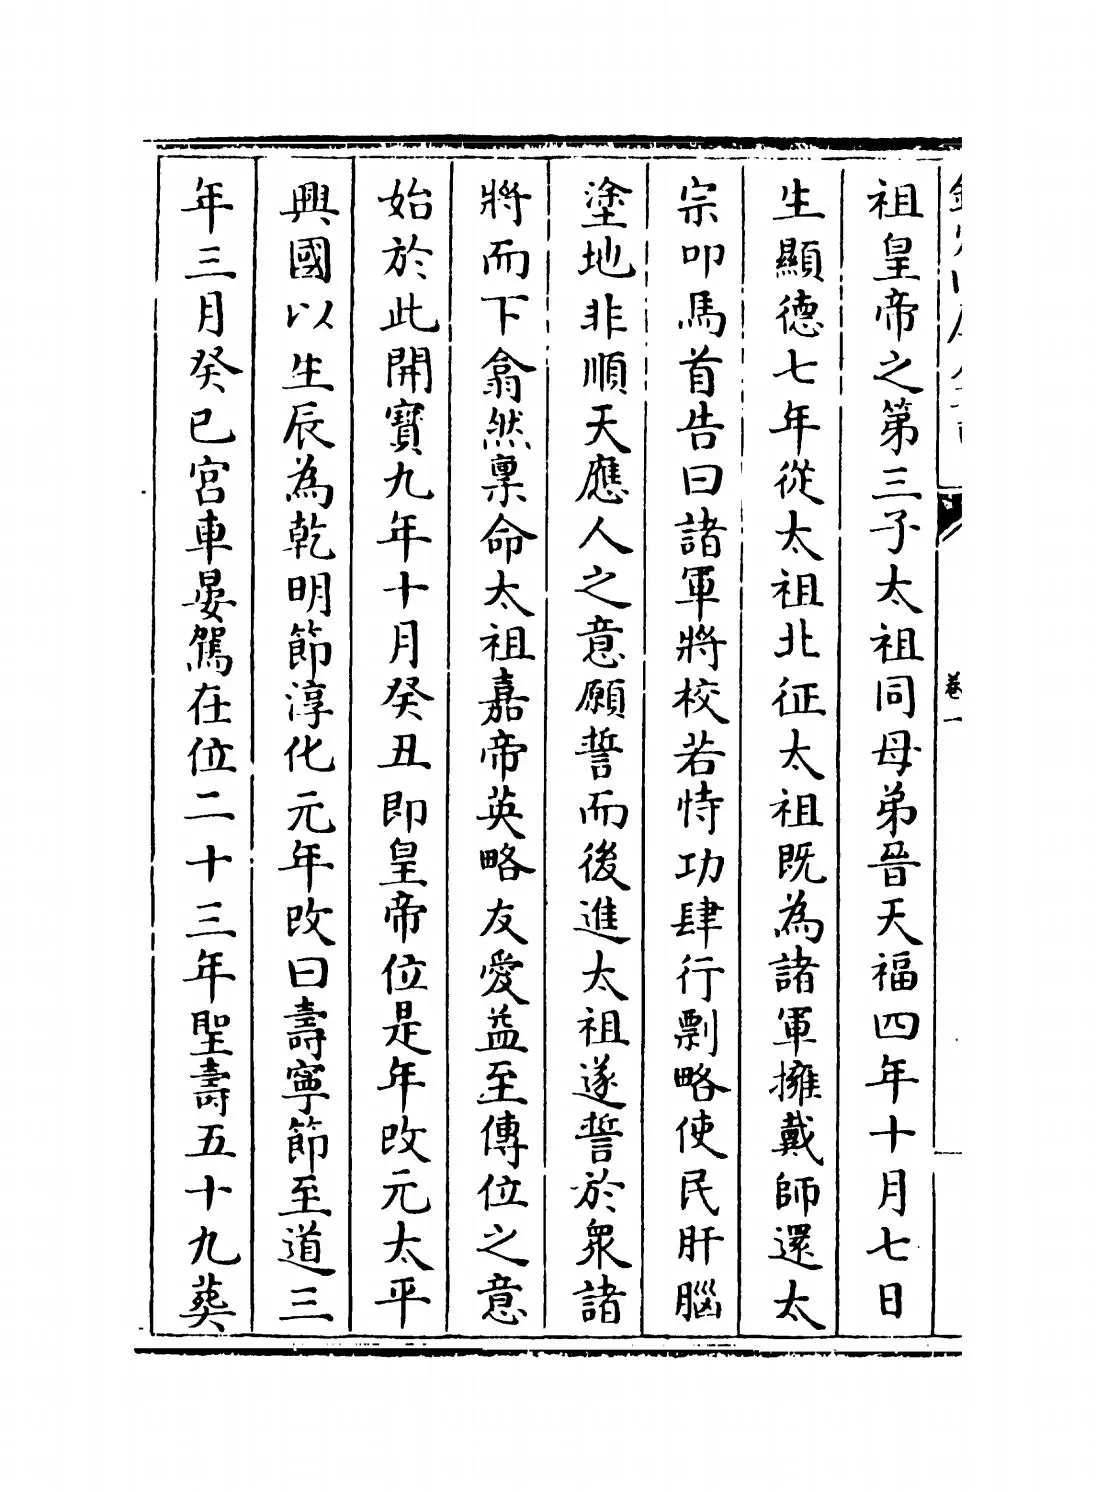 祖皇帝之第三子太祖同母弟晉天福四年十月七日
生顯德七年從太祖北征太祖既為諸軍擁戴師還太
宗叩馬首告曰諸軍將校若恃功肆行剽略使民肝腦
塗地非順天應人之意願誓而後進太祖遂誓於衆諸
將而下翕然稟命太祖嘉帝英略友愛益至傳位之意
始於此開寳九年十月癸丑即皇帝位是年改元太平
興國以生辰為乾明節淳化元年改曰壽寧節至道三
年三月癸巳宮車晏駕在位二十三年聖壽五十九葬
卷一